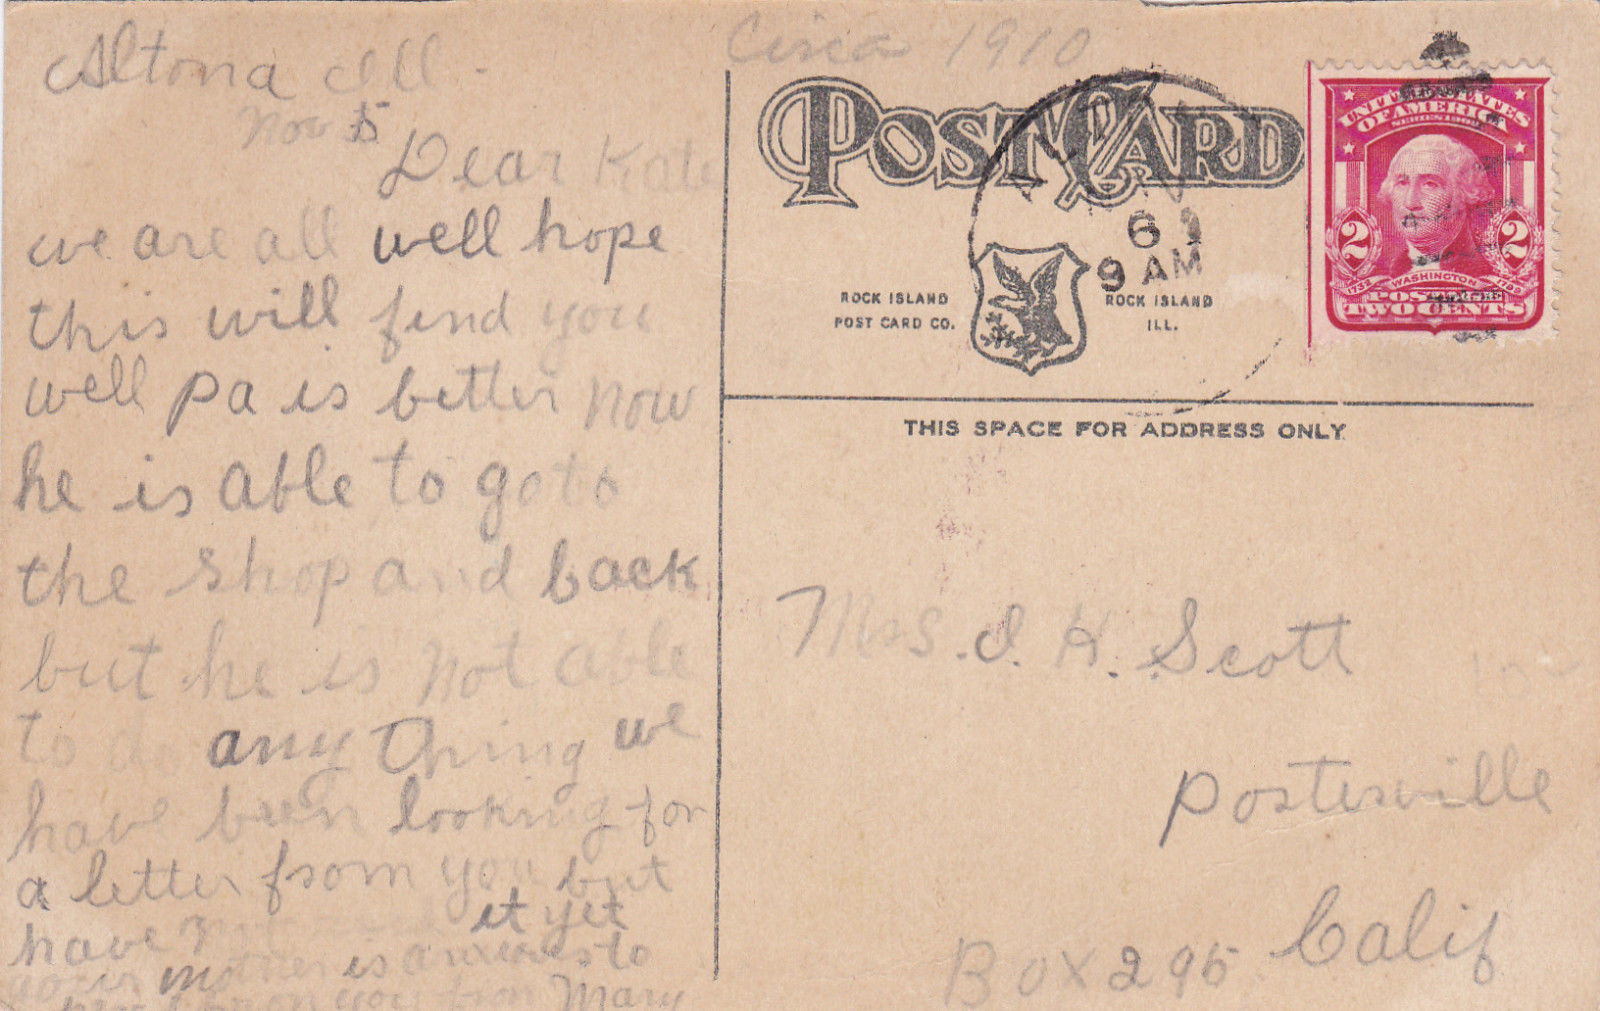 Altona Ill.
Nov 5
Dear Kate
we are all well hope
this will find you
well pa is better now
he is able to go to
the shop and back
but he is not able
to do any thing we
have been looking for
a letter from you but
have not it yet
your mother is anxious to
from you from Mary
Circa 1910
POST CARD
ROCK ISLAND
POST CARD CO.
ROCK ISLAND
ILL.
6
9 AM
UNITED STATES
OF AMERICA
SERIES 1902
1732 WASHINGTON 1799
2 2
POSTAGE
TWO CENTS
THIS SPACE FOR ADDRESS ONLY
Mrs. I. H. Scott
Postersville
Calif
Box 295